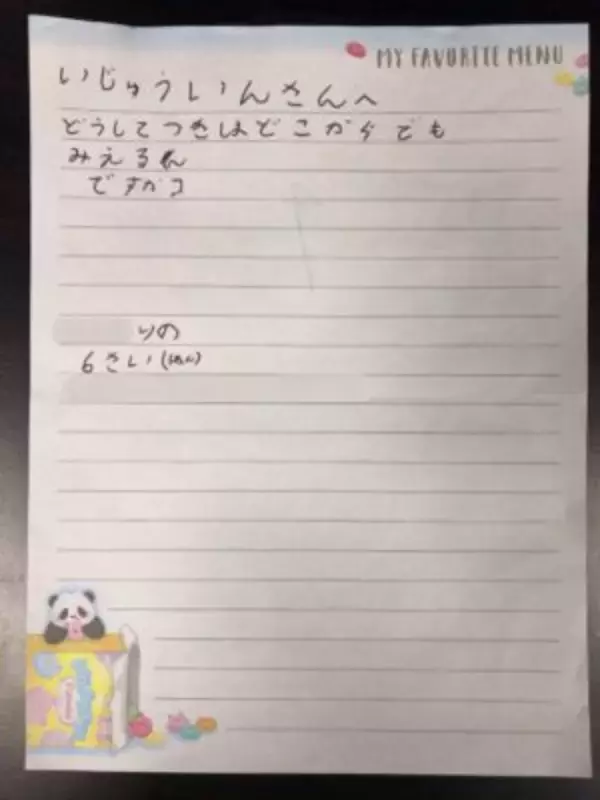 MY FAVORITE MENU
いじゅういんさんへ
どうしてつきはどこからでも
みえるん
ですかコ
りの
6さい(ねん)